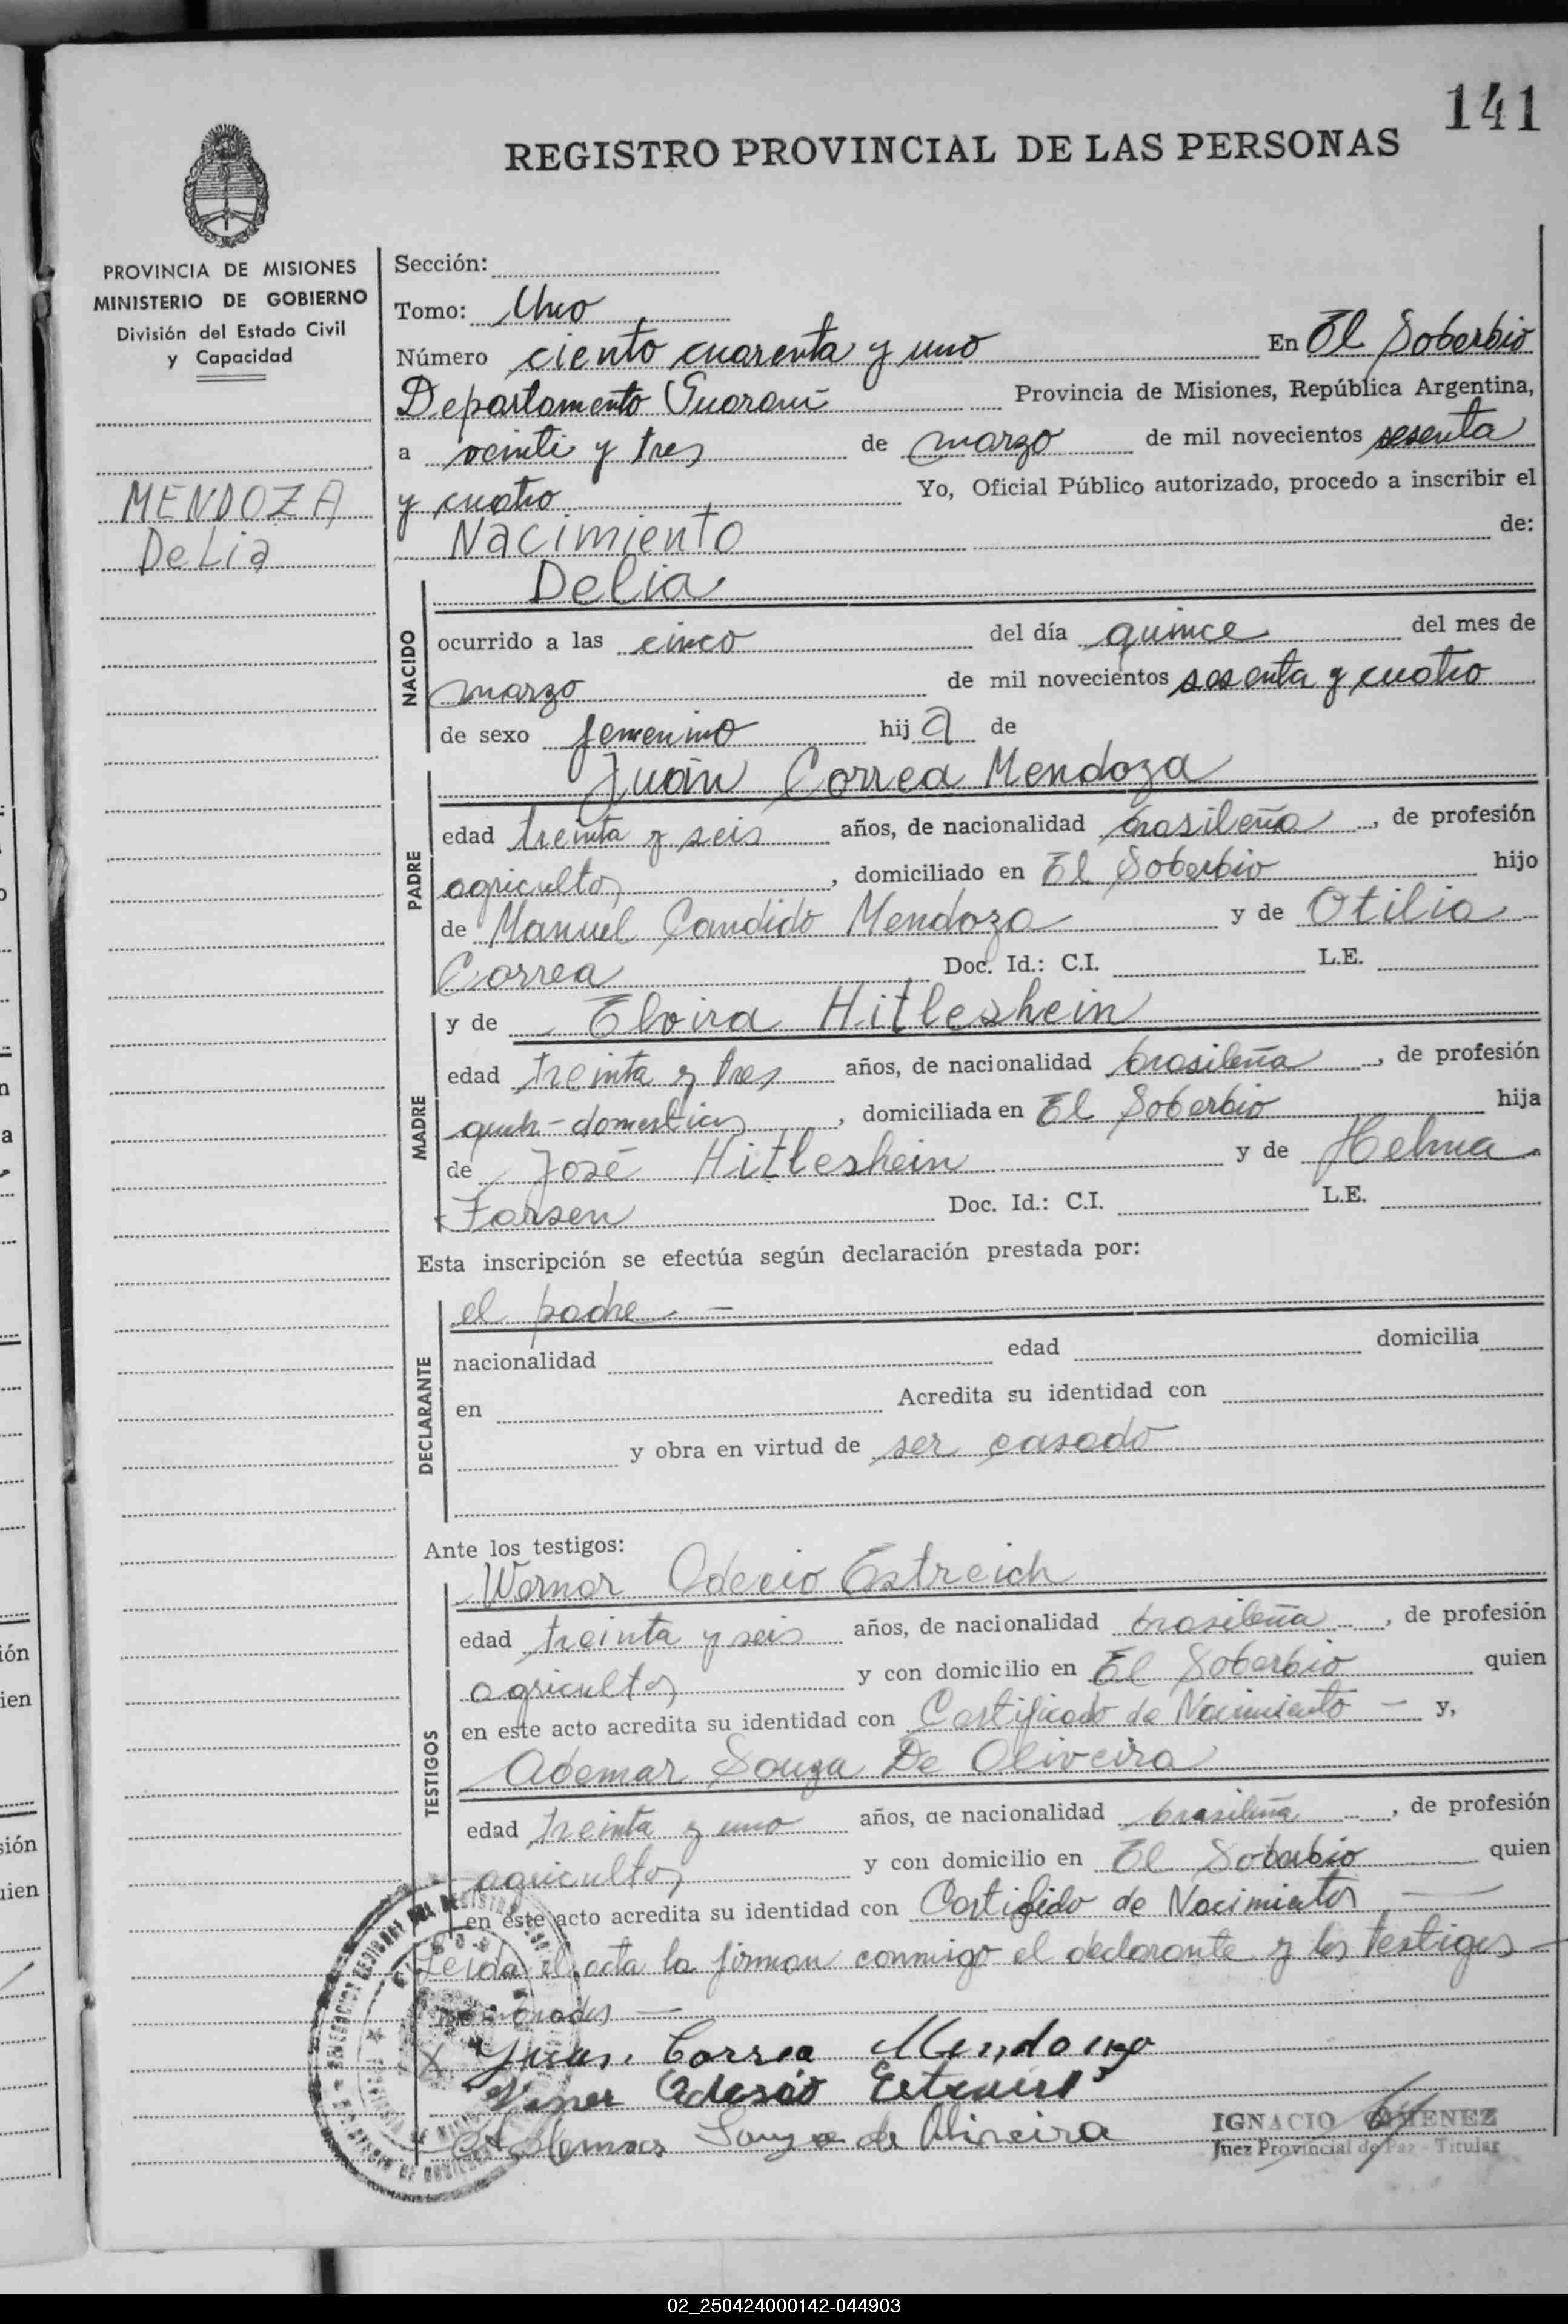 141
REGISTRO PROVINCIAL DE LAS PERSONAS
PROVINCIA DE MISIONES
MINISTERIO DE GOBIERNO
División del Estado Civil
y Capacidad
MENDOZA
DeLia
Sección:
Tomo: Uno
Número ciento cuarenta y uno En El Soberbio
Departamento Guaraní Provincia de Misiones, República Argentina,
a veinti y tres de marzo de mil novecientos sesenta
y cuatro Yo, Oficial Público autorizado, procedo a inscribir el
Nacimiento de:
NACIDO
Delia
ocurrido a las cinco del día quince del mes de
marzo de mil novecientos sesenta y cuatro
de sexo femenino hija de
PADRE
Juán Correa Mendoza
edad treinta y seis años, de nacionalidad brasileña, de profesión
agricultor, domiciliado en El Soberbio hijo
de Manuel Candido Mendoza y de Otilia
Correa Doc. Id.: C.I. L.E.
MADRE
y de Elvira Hitleshein
edad treinta y tres años, de nacionalidad brasileña, de profesión
queh-domesticos, domiciliada en El Soberbio hija
de José Hitleshein y de Helma
Farsen Doc. Id.: C.I. L.E.
Esta inscripción se efectúa según declaración prestada por:
DECLARANTE
el padre. —
nacionalidad edad domicilia
en Acredita su identidad con
y obra en virtud de ser casado
Ante los testigos:
TESTIGOS
Wernor Odecio Estreich
edad treinta y seis años, de nacionalidad brasileña, de profesión
agricultor y con domicilio en El Soberbio quien
en este acto acredita su identidad con Certificado de Nacimiento — y,
Ademar Souza De Oliveira
edad treinta y uno años, de nacionalidad brasileña, de profesión
agricultor y con domicilio en El Soberbio quien
en este acto acredita su identidad con Certifido de Nacimiento —
Leída el acta la firman conmigo el declarante y los testigos —
X Juan Correa Mendonza
Souza de Oliveira
IGNACIO GIMENEZ
Juez Provincial de Paz - Titular
02_250424000142-044903